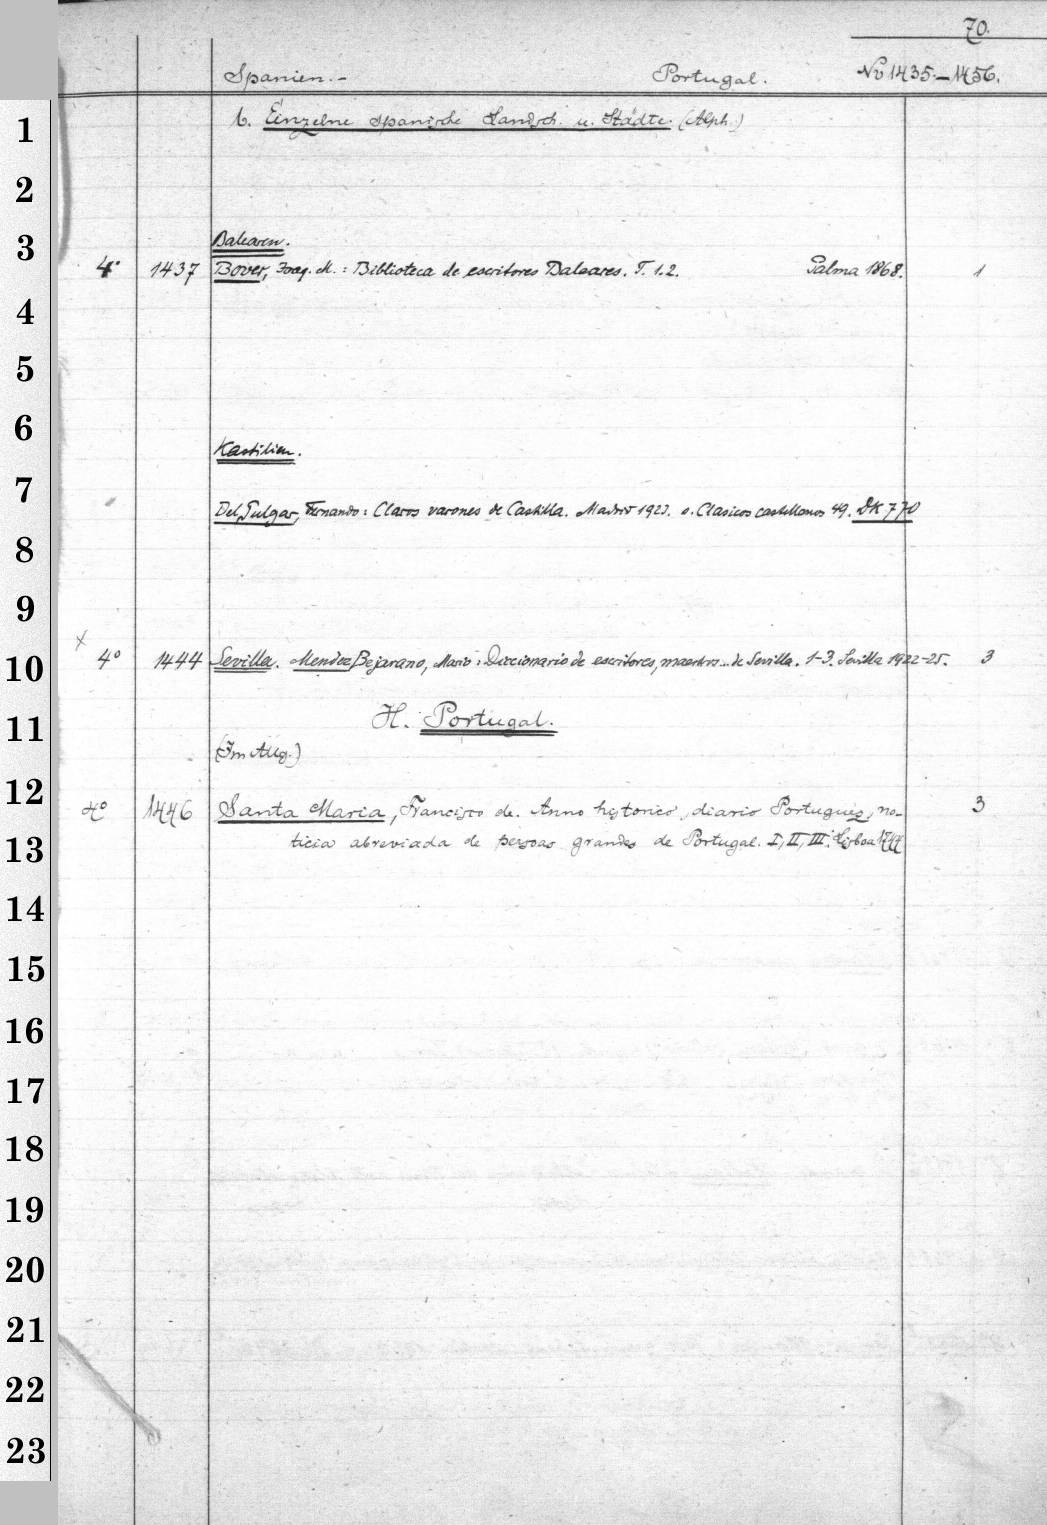 70.
Spanien.- Portugal. No 1435.-1456.
1
b. Einzelne spanische Landsch. u. Städte. (Alph.)
2
3
Balearen.
4° 1437 Bover, Joaq. M.: Biblioteca de escritores Baleares. T. 1.2. Palma 1868. 1
4
5
6
Kastilien.
7
Del Pulgar, Fernando: Claros varones de Castilla. Madrid 1923. s. Clasicos castellanos 49. DK 770
8
9
x
10 4° 1444 Sevilla. Mendez Bejarano, Mario: Diccionario de escritores, maestros... de Sevilla. 1-3. Sevilla 1922-25. 3
11 H. Portugal.
(Im Allg.)
12 4° 1446 Santa Maria, Francisco de. Anno historico, diario Portugues, no- 3
13 ticia abreviada de pessoas grandes de Portugal. I, II, III. Lisboa 1744
14
15
16
17
18
19
20
21
22
23